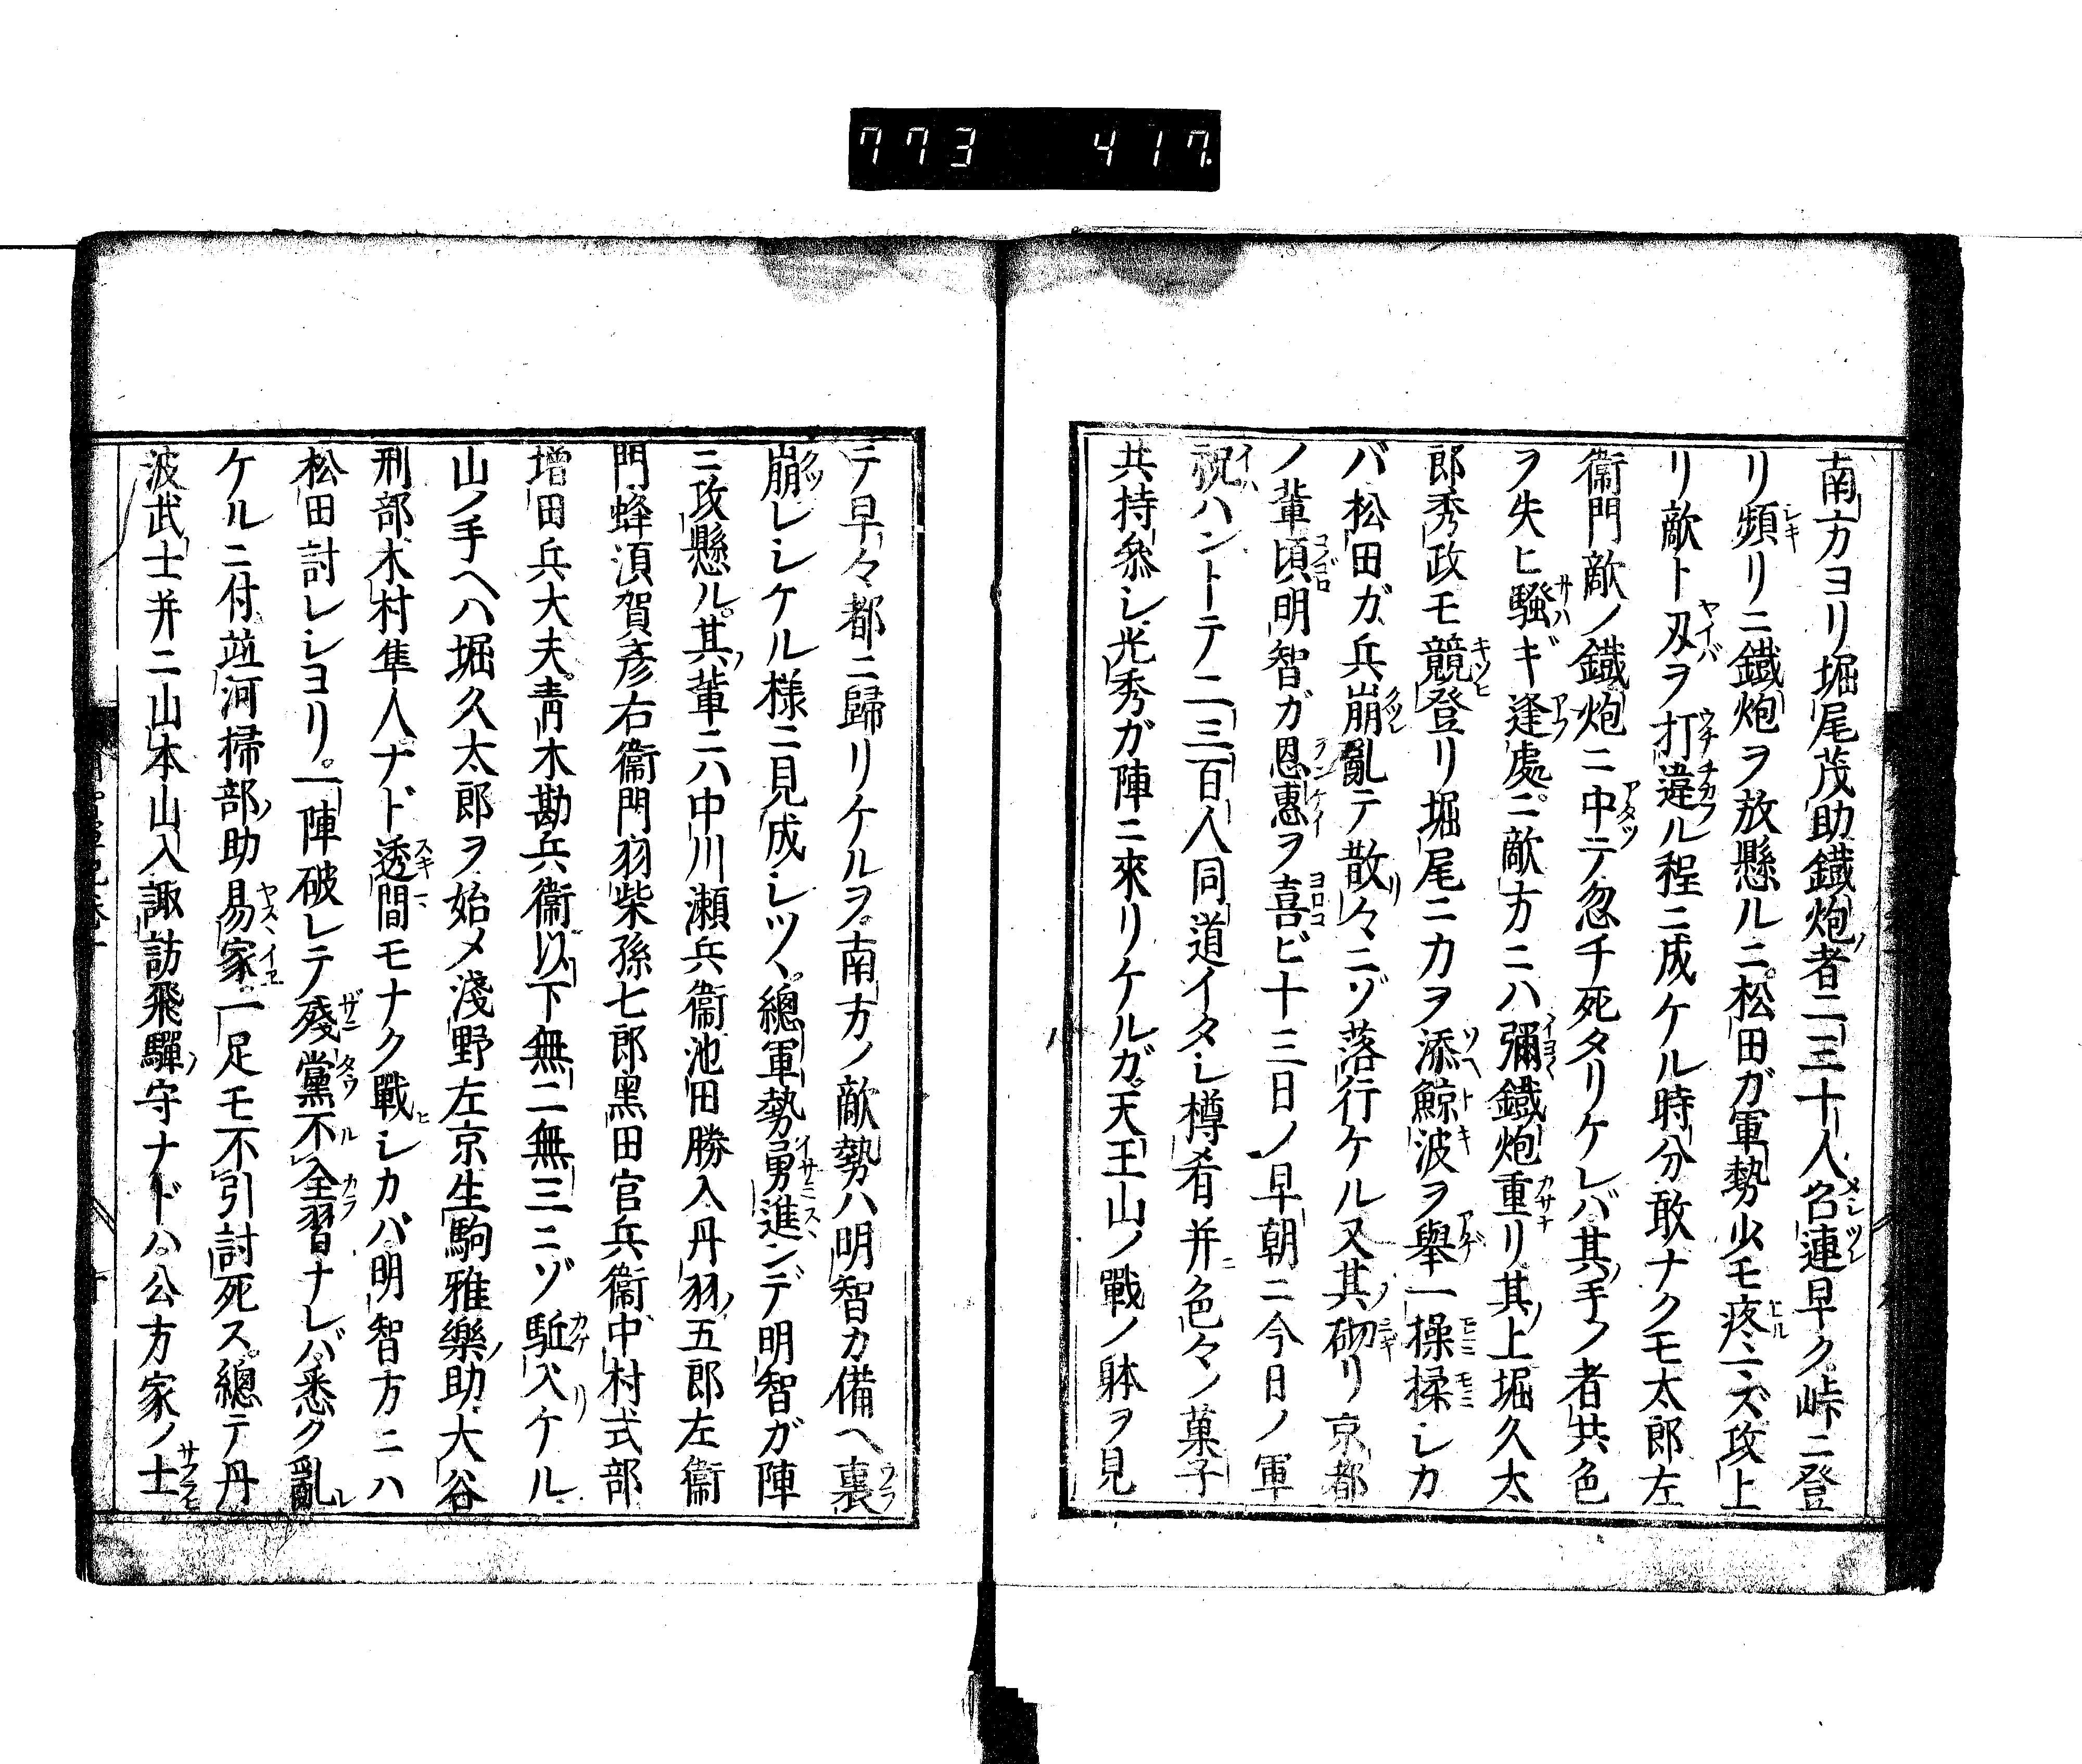 773 417
南方ヨリ堀尾茂助鐵炮ノ者二三十人召連早ク峠ニ登
リ頻リニ鐵炮ヲ放懸ルニ松田ガ軍勢少モ疼ミズ攻上
リ敵ト刄ヲ打違ル程ニ成ケル時分敢ナクモ太郎左
衞門敵ノ鐵炮ニ中テ忽チ死タリケレバ其ノ手ノ者共色
ヲ失ヒ騷ギ逢處ニ敵方ニハ彌鐵炮重リ其ノ上堀久太
郎秀政モ競登リ堀尾ニカヲ添鯨波ヲ擧一揉揉シカ
バ松田ガ兵崩亂テ散々ニゾ落行ケル又其ノ砌リ京都
ノ輩頃明智ガ恩惠ヲ喜ビ十三日ノ早朝ニ今日ノ軍
祝ハントテ二三百人同道イタシ樽肴并ニ色々ノ菓子
共持參シ光秀ガ陣ニ來リケルガ天王山ノ戰ノ躰ヲ見
テ早々都ニ歸リケルヲ南方ノ敵勢ハ明智カ備ヘ裏
崩レシケル樣ニ見成シツヽ總軍勢勇進ンデ明智ガ陣
ニ攻懸ル其ノ輩ニハ中川瀨兵衞池田勝入丹羽五郎左衞
門蜂須賀彥右衞門羽柴孫七郎黑田官兵衞中村式部
增田兵大夫靑木勘兵衞以下無二無三ニゾ駈入リケル
山ノ手ヘハ堀久太郎ヲ始メ淺野左京生駒雅樂ノ助大谷
刑部木村隼人ナド透間モナク戰ヒシカバ明智方ニハ
松田討レシヨリ一陣破レテ殘黨不全習ナレバ悉ク亂レ
ケルニ付並河掃部ノ助易家一足モ不引討死ス總テ丹
波武士并ニ山本山入諏訪飛驒ノ守ナドハ公方家ノ士